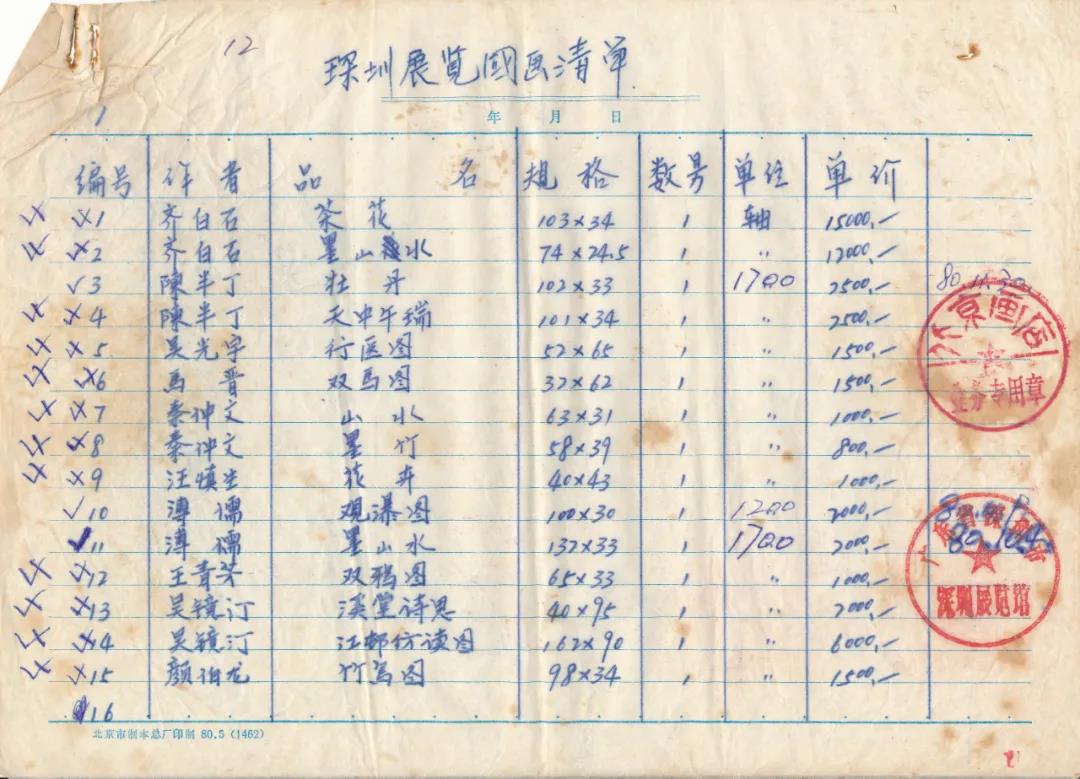 12
深圳展览國画清单
年 月 日
1
编号 作者 品名 规格 数号 单位 单价
1 齐白石 茶花 103×34 1 轴 15000,—
2 齐白石 墨山水 74×24.5 1 〃 12000,—
3 陳半丁 牡丹 102×33 1 1700 2500,—
4 陳半丁 天中午瑞 101×34 1 〃 2500,—
5 吴光宇 行医图 52×65 1 〃 1500,—
6 馬晋 双馬图 32×62 1 〃 1500,—
7 秦仲文 山水 63×31 1 〃 1000,—
8 秦仲文 墨竹 58×39 1 〃 800,—
9 汪慎生 花卉 40×43 1 〃 1000,—
10 溥儒 观瀑图 100×30 1 1200 2000,—
11 溥儒 墨山水 132×33 1 1700 2000,—
12 王青芳 双鸦图 65×33 1 〃 1000,—
13 吴镜汀 溪堂诗思 40×95 1 〃 2000,—
14 吴镜汀 江邨仿读图 162×90 1 〃 6000,—
15 颜伯龙 竹鸟图 98×34 1 〃 1500,—
16
北京画店
业务专用章
深圳展览馆
北京市制本总厂印制 80.5 (1462)